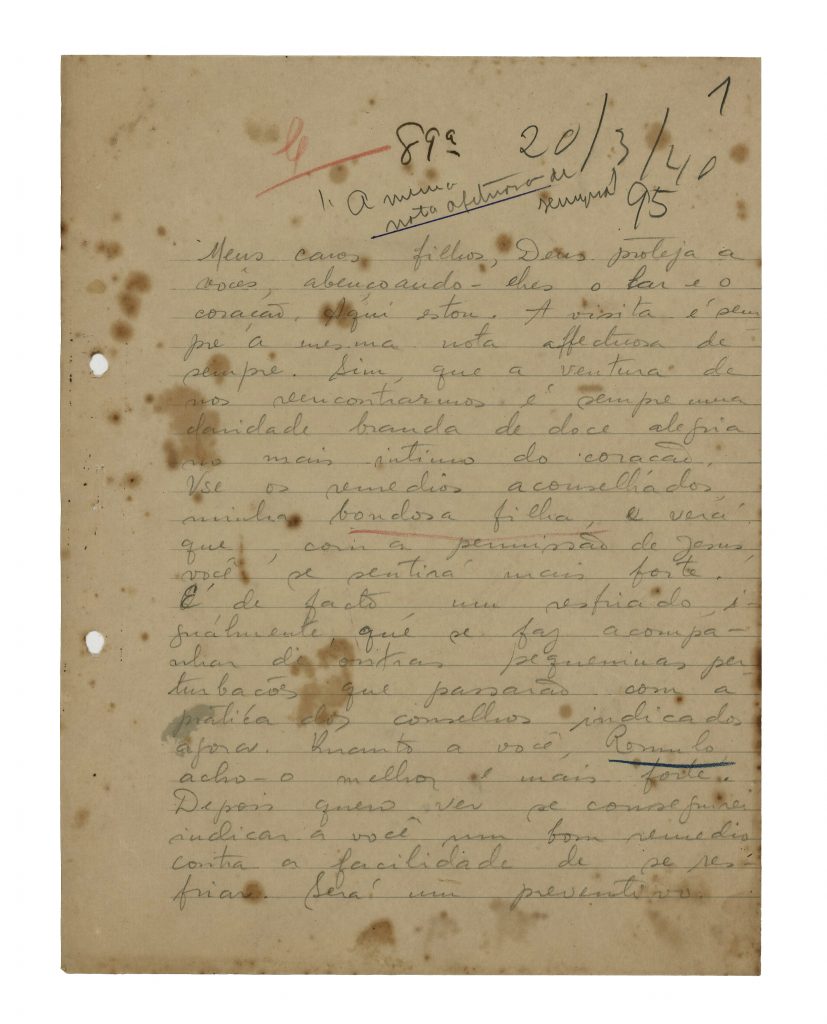 1
89ª 20/3/40
1. A mesma
nota afetuosa de
sempre 95
Meus caros filhos, Deus proteja a
vocês, abençoando-lhes o lar e o
coração. Aqui estou. A visita é sem-
pre a mesma nota affectuosa de
sempre. Sim, que a ventura de
nos reencontrarmos é sempre uma
claridade branda de doce alegria
no mais intimo do coração.
Use os remedios aconselhados,
minha bondosa filha, e verá
que, com a permissão de Jesus,
você se sentirá mais forte.
É de facto um resfriado, i-
gualmente, que se faz acompa-
nhar di outras pequeninas per-
turbacões que passarão com a
pratica dos conselhos indicados
agora. Quanto a você, Romulo,
acho-o melhor e mais forte.
Depois quero ver se conseguirei
indicar a você um bom remedio
contra a facilidade de se res-
friar. Será um preventivo.